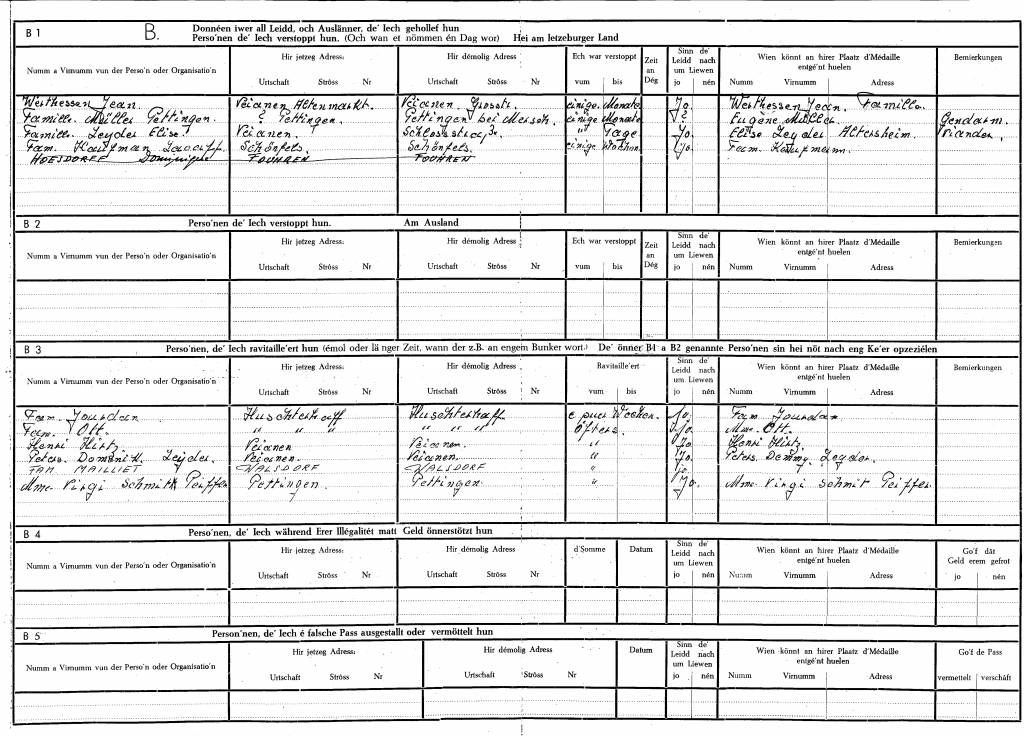 B 1 B. Donnéen iwer all Leidd, och Auslänner, de' Iech gehollef hun
Perso'nen de' Iech verstoppt hun. (Och wan et nömmen én Dag wor) Hei am letzeburger Land
Numm a Virnumm vun der Perso'n oder Organisatio'n
Hir jetzeg Adress:
Urtschaft Ströss Nr
Hir démolig Adress:
Urtschaft Ströss Nr
Ech war verstoppt
vum bis
Zeit an Dég
Sinn de' Leidd nach um Liewen
jo nén
Wien könnt an hirer Plaatz d'Médaille entgé'nt huelen
Numm Virnumm Adress
Bemierkungen
Jean. Veianen Altenmarkt. Veianen. einige. Monate Jo. Jean. Familie.
Famille. Müller Pettingen. Pettingen. Pettingen bei Mersch. einige Monate ? Eugène Müller Gendarm.
Famille. Leyder Elise. Veianen. " Tage Jo. Elise Leyder Altersheim. Vianden.
Fam. Kaufman Schönfels. Schönfels. einige Wochen Jo. Fam. Kaufmann.
HOESDORF Dominique FOUHREN FOUHREN
B 2 Perso'nen de' Iech verstoppt hun. Am Ausland
Numm a Virnumm vun der Perso'n oder Organisatio'n
Hir jetzeg Adress:
Urtschaft Ströss Nr
Hir démolig Adress
Urtschaft Ströss Nr
Ech war verstoppt
vum bis
Zeit an Dég
Sinn de' Leidd nach um Liewen
jo nén
Wien könnt an hirer Plaatz d'Médaille entgé'nt huelen
Numm Virnumm Adress
Bemierkungen
B 3 Perso'nen, de' Iech ravitaille'ert hun (émol oder lä nger Zeit, wann der z.B. an engem Bunker wort.) De' önner B1 a B2 genannte Perso'nen sin hei nöt nach eng Ke'er opzeziélen
Numm a Virnumm vun der Perso'n oder Organisatio'n
Hir jetzeg Adress:
Urtschaft Ströss Nr
Hir démolig Adress
Urtschaft Ströss Nr
Ravitaille'ert
vum bis
Sinn de' Leidd nach um Liewen
jo nén
Wien könnt an hirer Plaatz d'Médaille entgé'nt huelen
Numm Virnumm Adress
Bemierkungen
Fam. Jourdan e puer Wochen. Jo. Fam Jourdan
Fam. Ott. " " " " " " Öfters. Jo. Mme. Ott.
Henri Hirtz. Veianen Veianen. " Jo Henri Hirtz.
Peters. Leyder. Veianen. Veianen. " Jo. Peters Leyder.
FAM. MAILLIET WALSDORF WALSDORF " jo
Mme. Virgi Schmit Peiffer Pettingen. Pettingen. " Jo. Mme. Virgi Schmit Peiffer.
B 4 Perso'nen, de' Iech während Erer Illégalitét matt Geld önnerstötzt hun
Numm a Virnumm vun der Perso'n oder Organisatio'n
Hir jetzeg Adress:
Urtschaft Ströss Nr
Hir démolig Adress
Urtschaft Ströss Nr
d'Somme
Datum
Sinn de' Leidd nach um Liewen
jo nén
Wien könnt an hirer Plaatz d'Médaille entgé'nt huelen
Numm Virnumm Adress
Go'f dât Geld erem gefrot
jo nén
B 5 Person'nen, de' Iech é falsche Pass ausgestallt oder vermöttelt hun
Numm a Virnumm vun der Perso'n oder Organisatio'n
Hir jetzeg Adress:
Urtschaft Ströss Nr
Hir démolig Adress:
Urtschaft Ströss Nr
Datum
Sinn de' Leidd nach um Liewen
jo nén
Wien könnt an hirer Plaatz d'Médaille entgé'nt huelen
Numm Virnumm Adress
Go'f de Pass
vermettelt verschâft